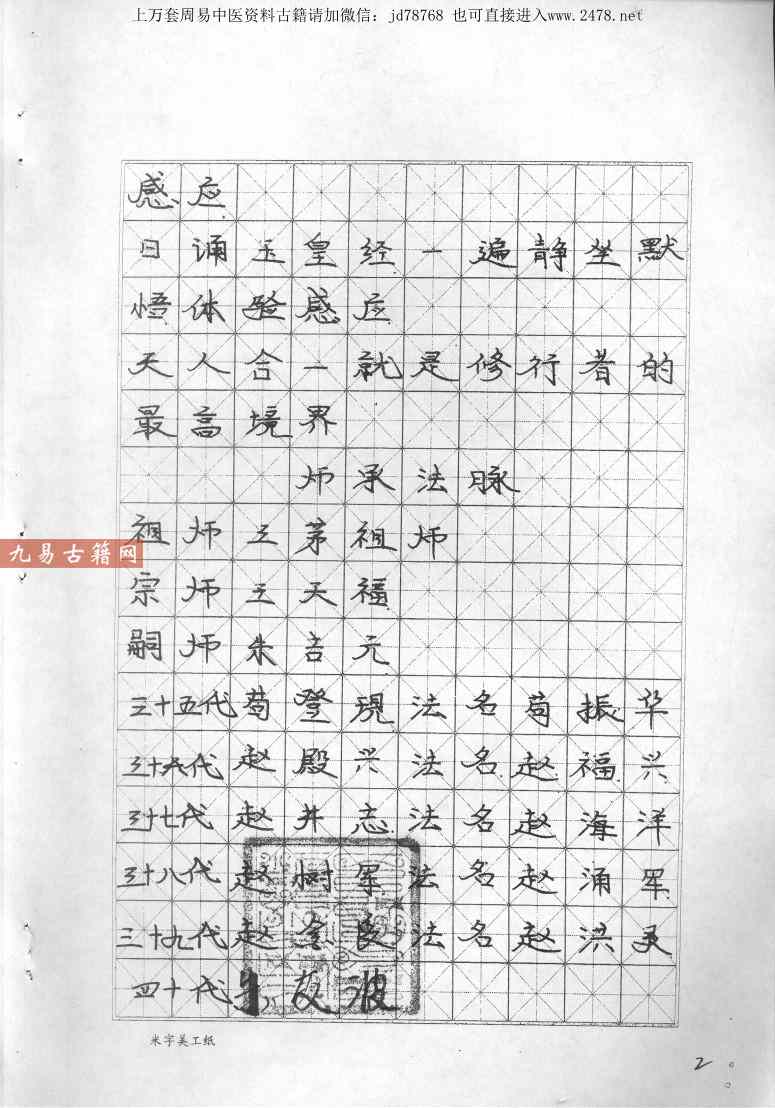 上万套周易中医资料古籍请加微信：jd78768 也可直接进入www.2478.net
感应
日诵玉皇经一遍静坐默
悟体验感应
天人合一就是修行者的
最高境界
师承法脉
祖师三茅祖师
九易古籍网
宗师王天福
嗣师朱吉元
三十五代苟登现法名苟振华
三十六代赵殿兴法名赵福兴
三十七代赵井志法名赵海洋
三十八代赵树军法名赵涌军
三十九代赵金良法名赵洪灵
四十代 波
米字美工纸
2